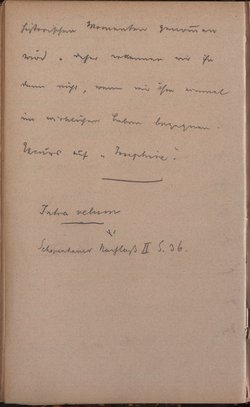 historischen Momenten genommen
wird, daher erkennen wir ihn
dann nicht, wenn wir ihm einmal
im wirklichen Leben begegnen.
auf „Josephine“.
Intra velum
Schopenhauer Nachlaß II S. 36.